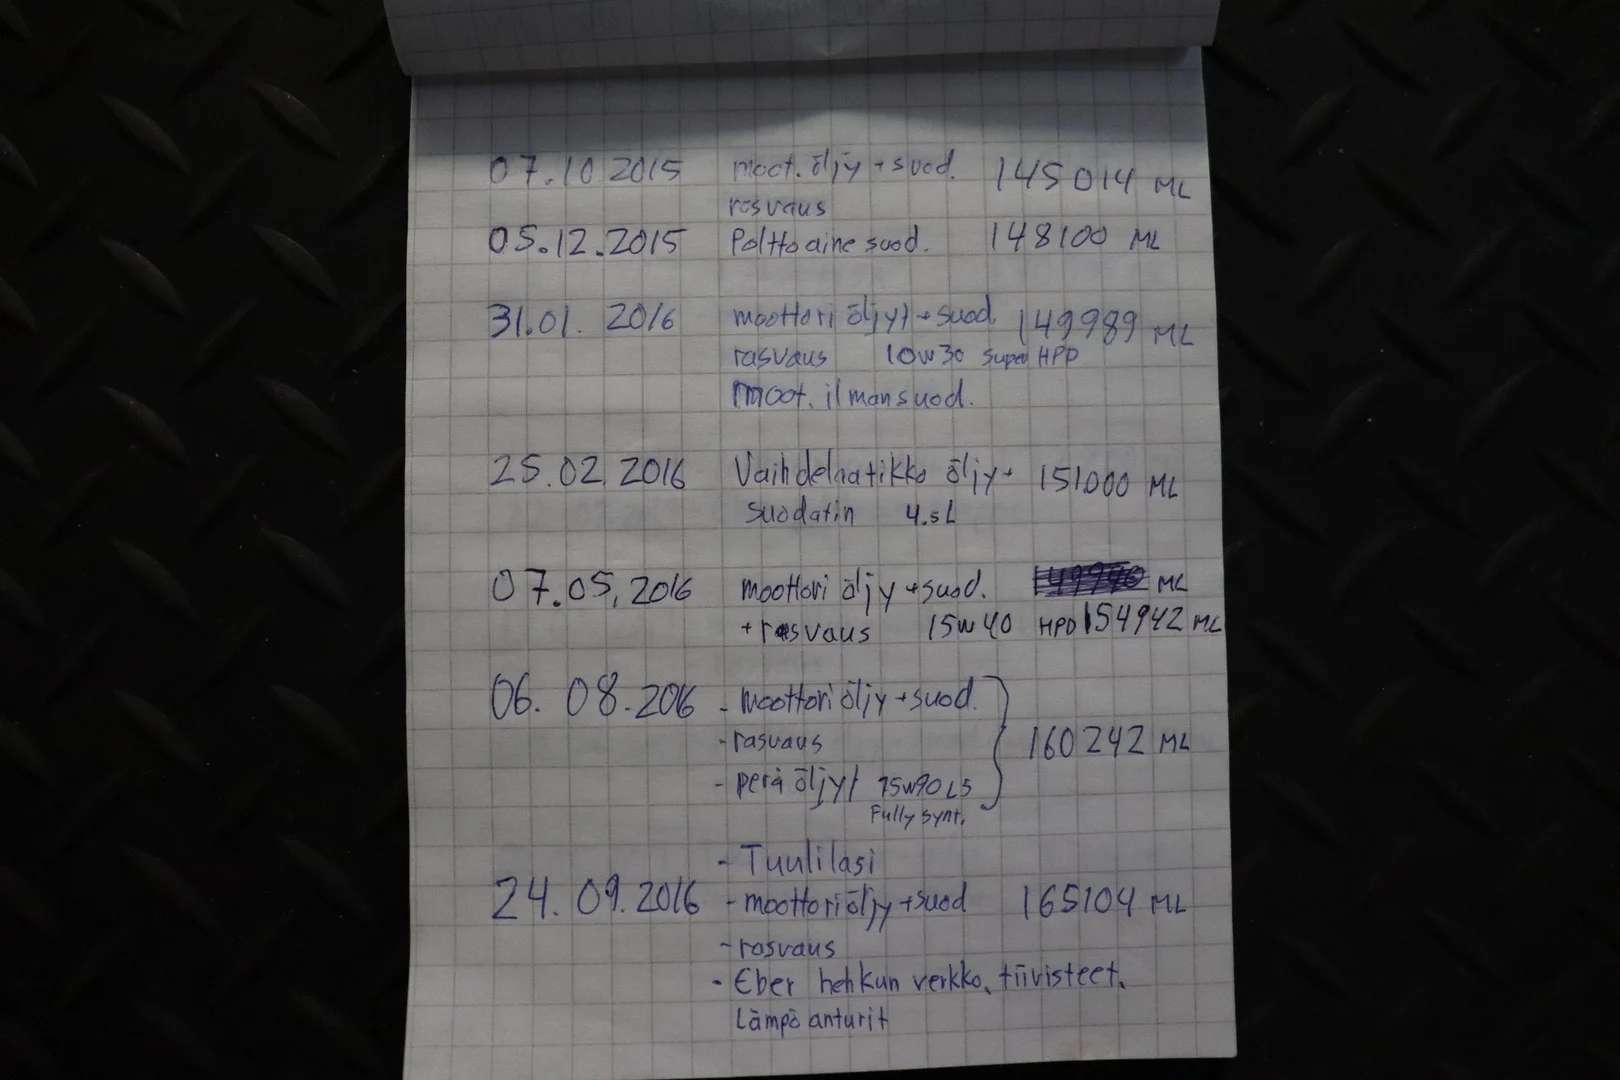 07.10 2015 moot. öljy + suod. 145014 ML
rasvaus
05.12.2015 Polttoaine suod. 148100 ML
31.01. 2016 moottori öljyt + suod. 149989 ML
rasvaus 10w30 Super HPD
Moot. ilmansuod.
25.02. 2016 Vaihdelaatikko öljy + 151000 ML
suodatin 4.5L
07.05, 2016 moottori öljy + suod. ML
+ rasvaus 15w40 HPD 154942 ML
06. 08. 2016 - moottoriöljy + suod.
- rasvaus 160242 ML
- perä öljyt 75w90 LS
Fully synt.
- Tuulilasi
24. 09. 2016 - moottoriöljy + suod 165104 ML
- rasvaus
- Eber hehkun verkko, tiivisteet,
Lämpö anturit